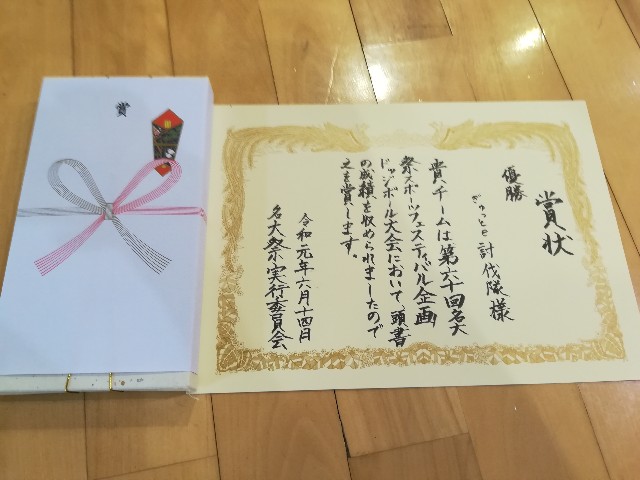 賞状
優勝
ぎゅっとe討伐隊様
貴チームは第六十回名大
祭スポーツフェスティバル企画
ドッジボール大会において、頭書
の成績を収められましたので
之を賞します。
令和元年六月十四日
名大祭実行委員会
賞